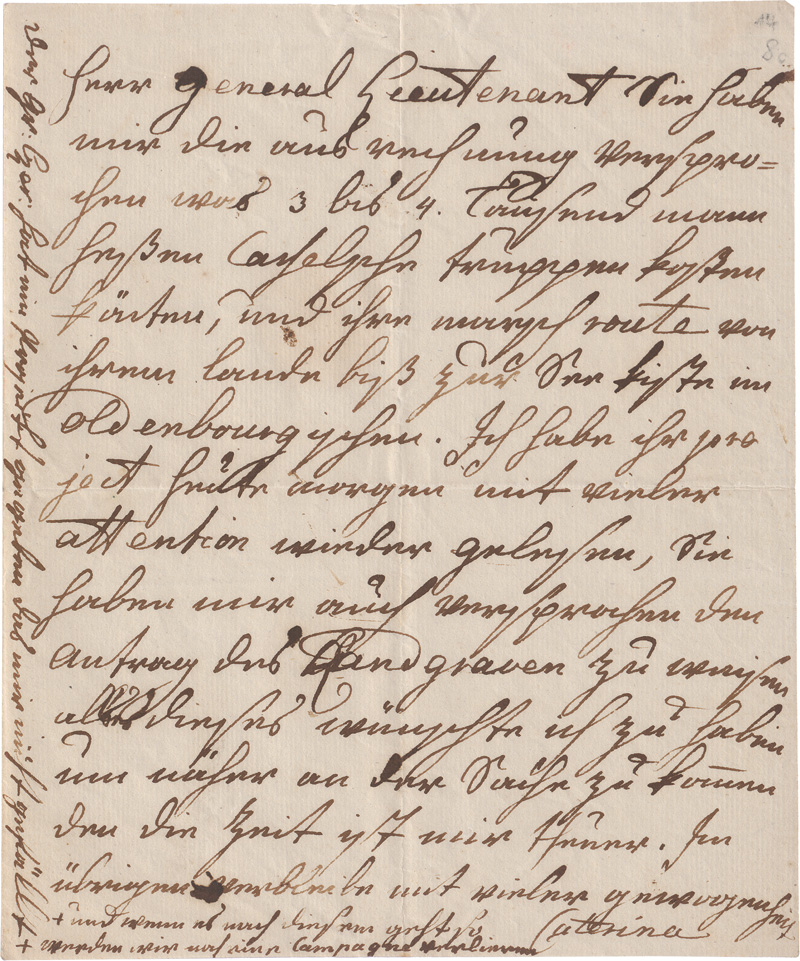 Herr General Lieutenant Sie haben
mir die ausrechnung verspro=
chen was 3 bis 4. Tausend mann
heßen Casselsche truppen kosten
könten, und ihre marsch route von
ihrem lande biß zur See küste im
Oldenbourgischen. Ich habe ihr pro
ject heute morgen mit vieler
attention wieder gelesen, Sie
haben mir auch versprochen den
Antrag des Landgraven zu weisen
alles dieses wünschte ich zu haben
um näher an der Sache zu kom̄en
den die Zeit ist mir theuer. Im
übrigen verbleibe mit vieler gewogenheit
Caterina
+ und wenn es nach diesem geht so
+ werden wir noch eine Campagne verlieren
der Gr: hat ein Project + gegeben das mir nicht gefällt